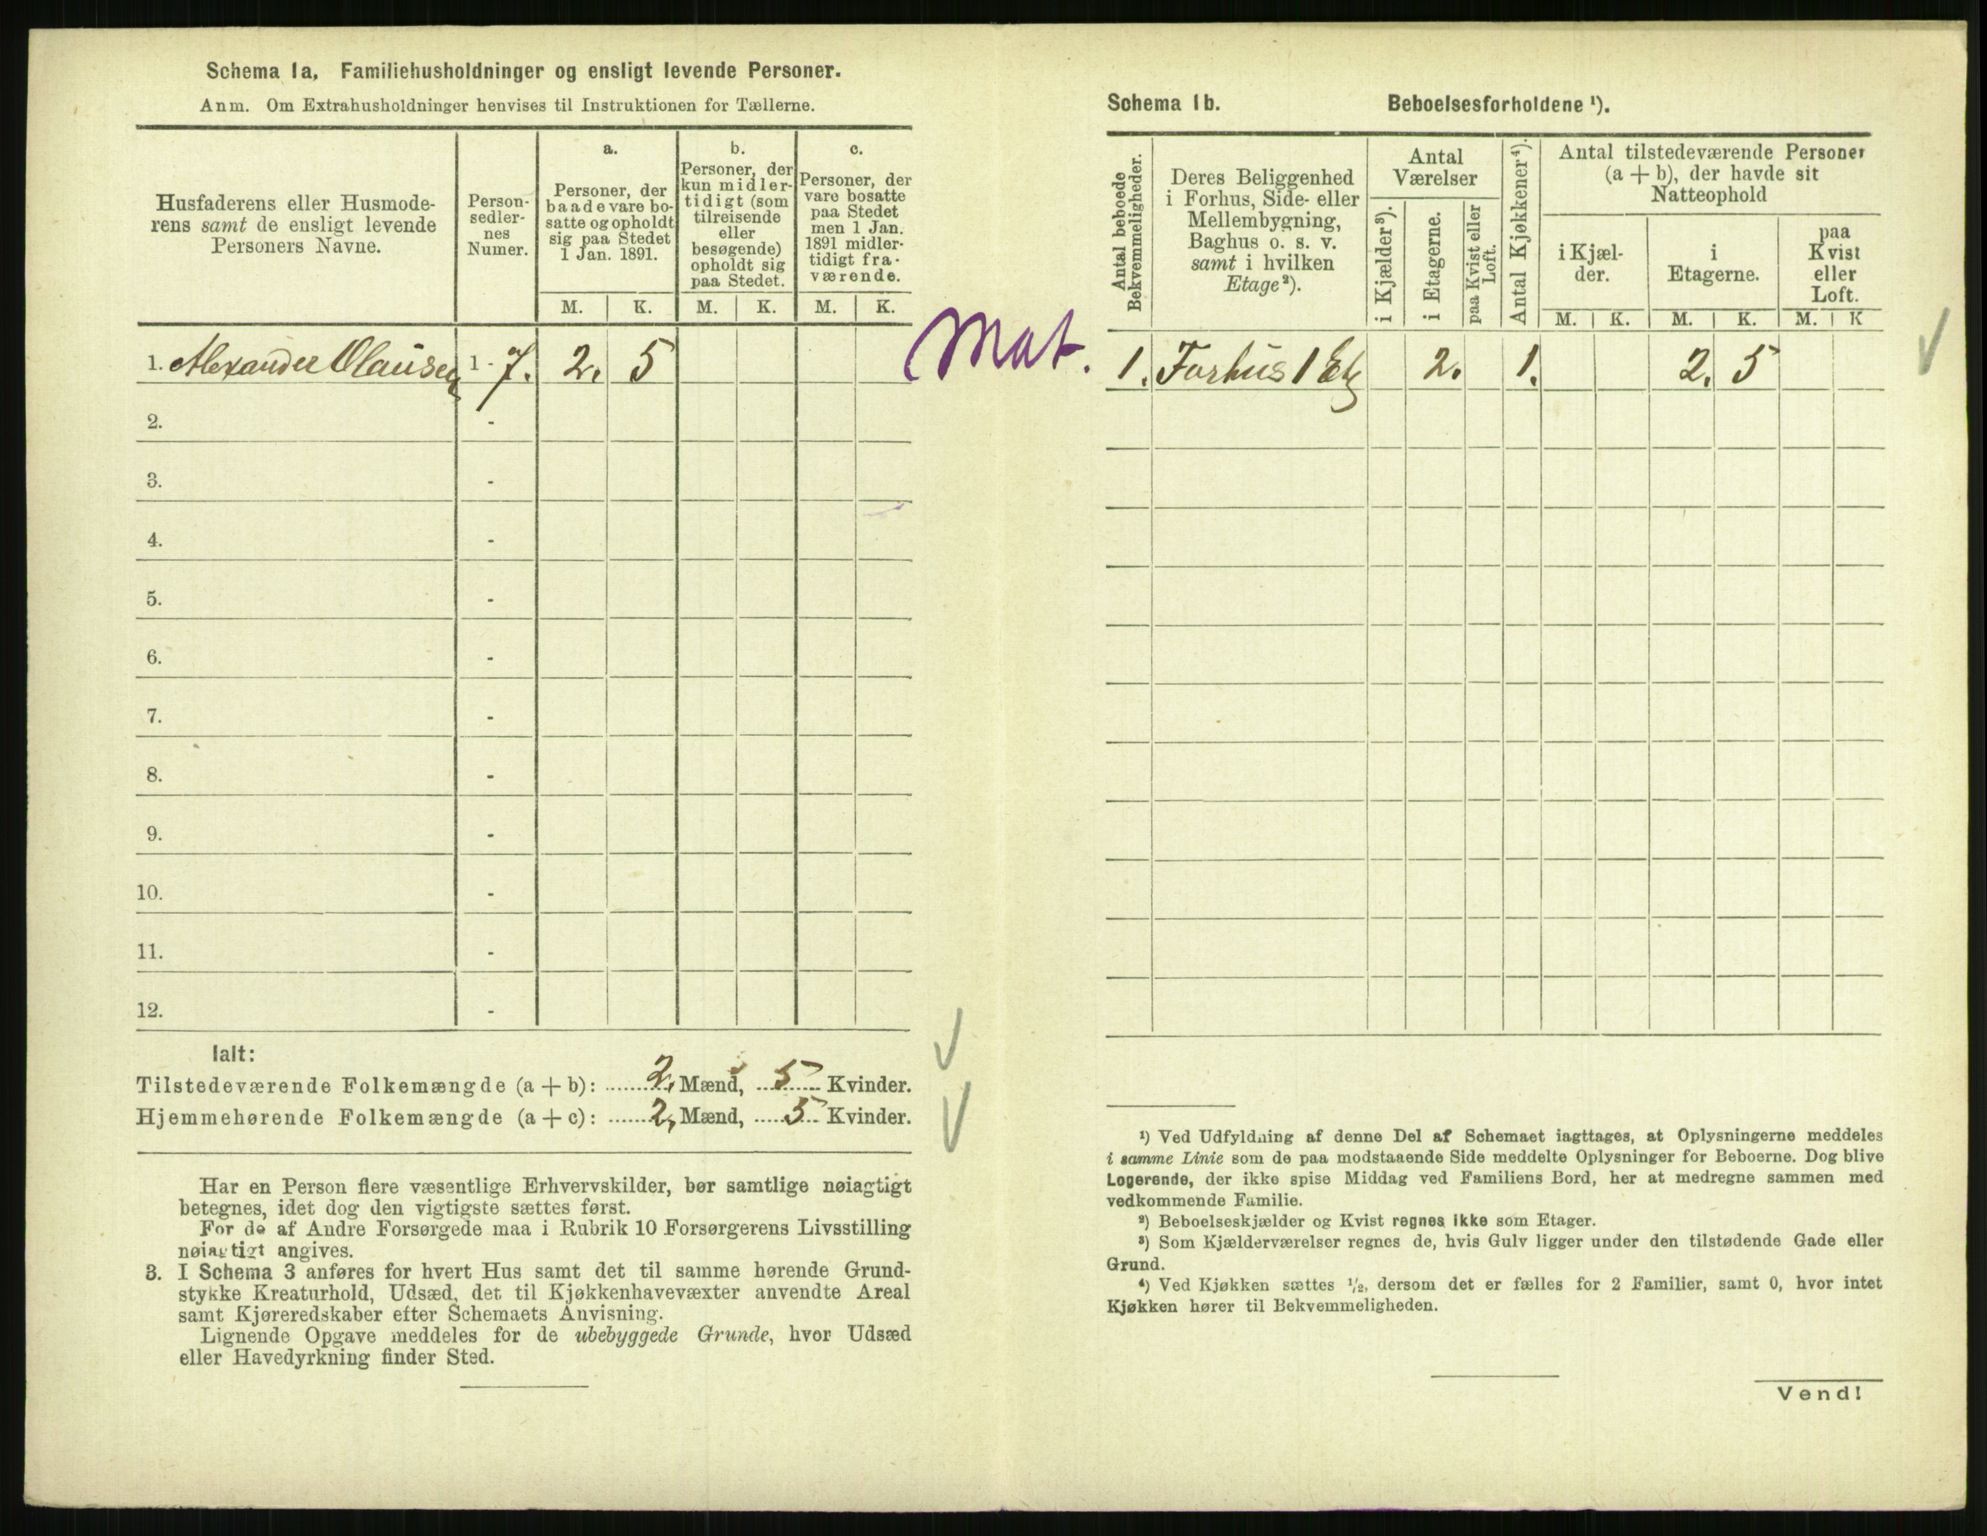 Schema 1a, Familiehusholdninger og ensligt levende Personer.
Anm. Om Extrahusholdninger henvises til Instruktionen for Tællerne.
Husfaderens eller Husmode-
rens samt de ensligt levende
Personers Navne.
Person-
sedler-
nes
Numer.
a.
Personer, der
baade vare bo-
satte og opholdt
sig paa Stedet
1 Jan. 1891.
b.
Personer, der
kun midler-
tidigt (som
tilreisende
eller
besøgende)
opholdt sig
paa Stedet.
c.
Personer, der
vare bosatte
paa Stedet
men 1 Jan.
1891 midler-
tidigt fra-
værende.
M. K. M. K. M. K.
1. Alexander Olausen 1 - 7. 2. 5
2. -
3. -
4. -
5. -
6. -
7. -
8. -
9. -
10. -
11. -
12. -
Ialt:
Tilstedeværende Folkemængde (a + b): 2, Mænd, 5 Kvinder.
Hjemmehørende Folkemængde (a + c): 2, Mænd, 5 Kvinder.
Har en Person flere væsentlige Erhvervskilder, bør samtlige nøiagtigt
betegnes, idet dog den vigtigste sættes først.
For de af Andre Forsørgede maa i Rubrik 10 Forsørgerens Livsstilling
nøiagtigt angives.
3. I Schema 3 anføres for hvert Hus samt det til samme hørende Grund-
stykke Kreaturhold, Udsæd, det til Kjøkkenhavevæxter anvendte Areal
samt Kjøreredskaber efter Schemaets Anvisning.
Lignende Opgave meddeles for de ubebyggede Grunde, hvor Udsæd
eller Havedyrkning finder Sted.
Mat.
Schema 1b. Beboelsesforholdene ¹).
Antal beboede
Bekvemmeligheder.
Deres Beliggenhed
i Forhus, Side- eller
Mellembygning,
Baghus o. s. v.
samt i hvilken
Etage ²).
Antal
Værelser
i Kjælder ³).
i Etagerne.
paa Kvist eller
Loft.
Antal Kjøkkener ⁴).
Antal tilstedeværende Personer
(a + b), der havde sit
Natteophold
i Kjæl-
der.
i
Etagerne.
paa
Kvist
eller
Loft.
M. K. M. K. M. K
1. Forhus 1 Etg 2. 1. 2. 5
¹) Ved Udfyldning af denne Del af Schemaet iagttages, at Oplysningerne meddeles
i samme Linie som de paa modstaaende Side meddelte Oplysninger for Beboerne. Dog blive
Logerende, der ikke spise Middag ved Familiens Bord, her at medregne sammen med
vedkommende Familie.
²) Beboelseskjælder og Kvist regnes ikke som Etager.
³) Som Kjælderværelser regnes de, hvis Gulv ligger under den tilstødende Gade eller
Grund.
⁴) Ved Kjøkken sættes ½, dersom det er fælles for 2 Familier, samt 0, hvor intet
Kjøkken hører til Bekvemmeligheden.
Vend!